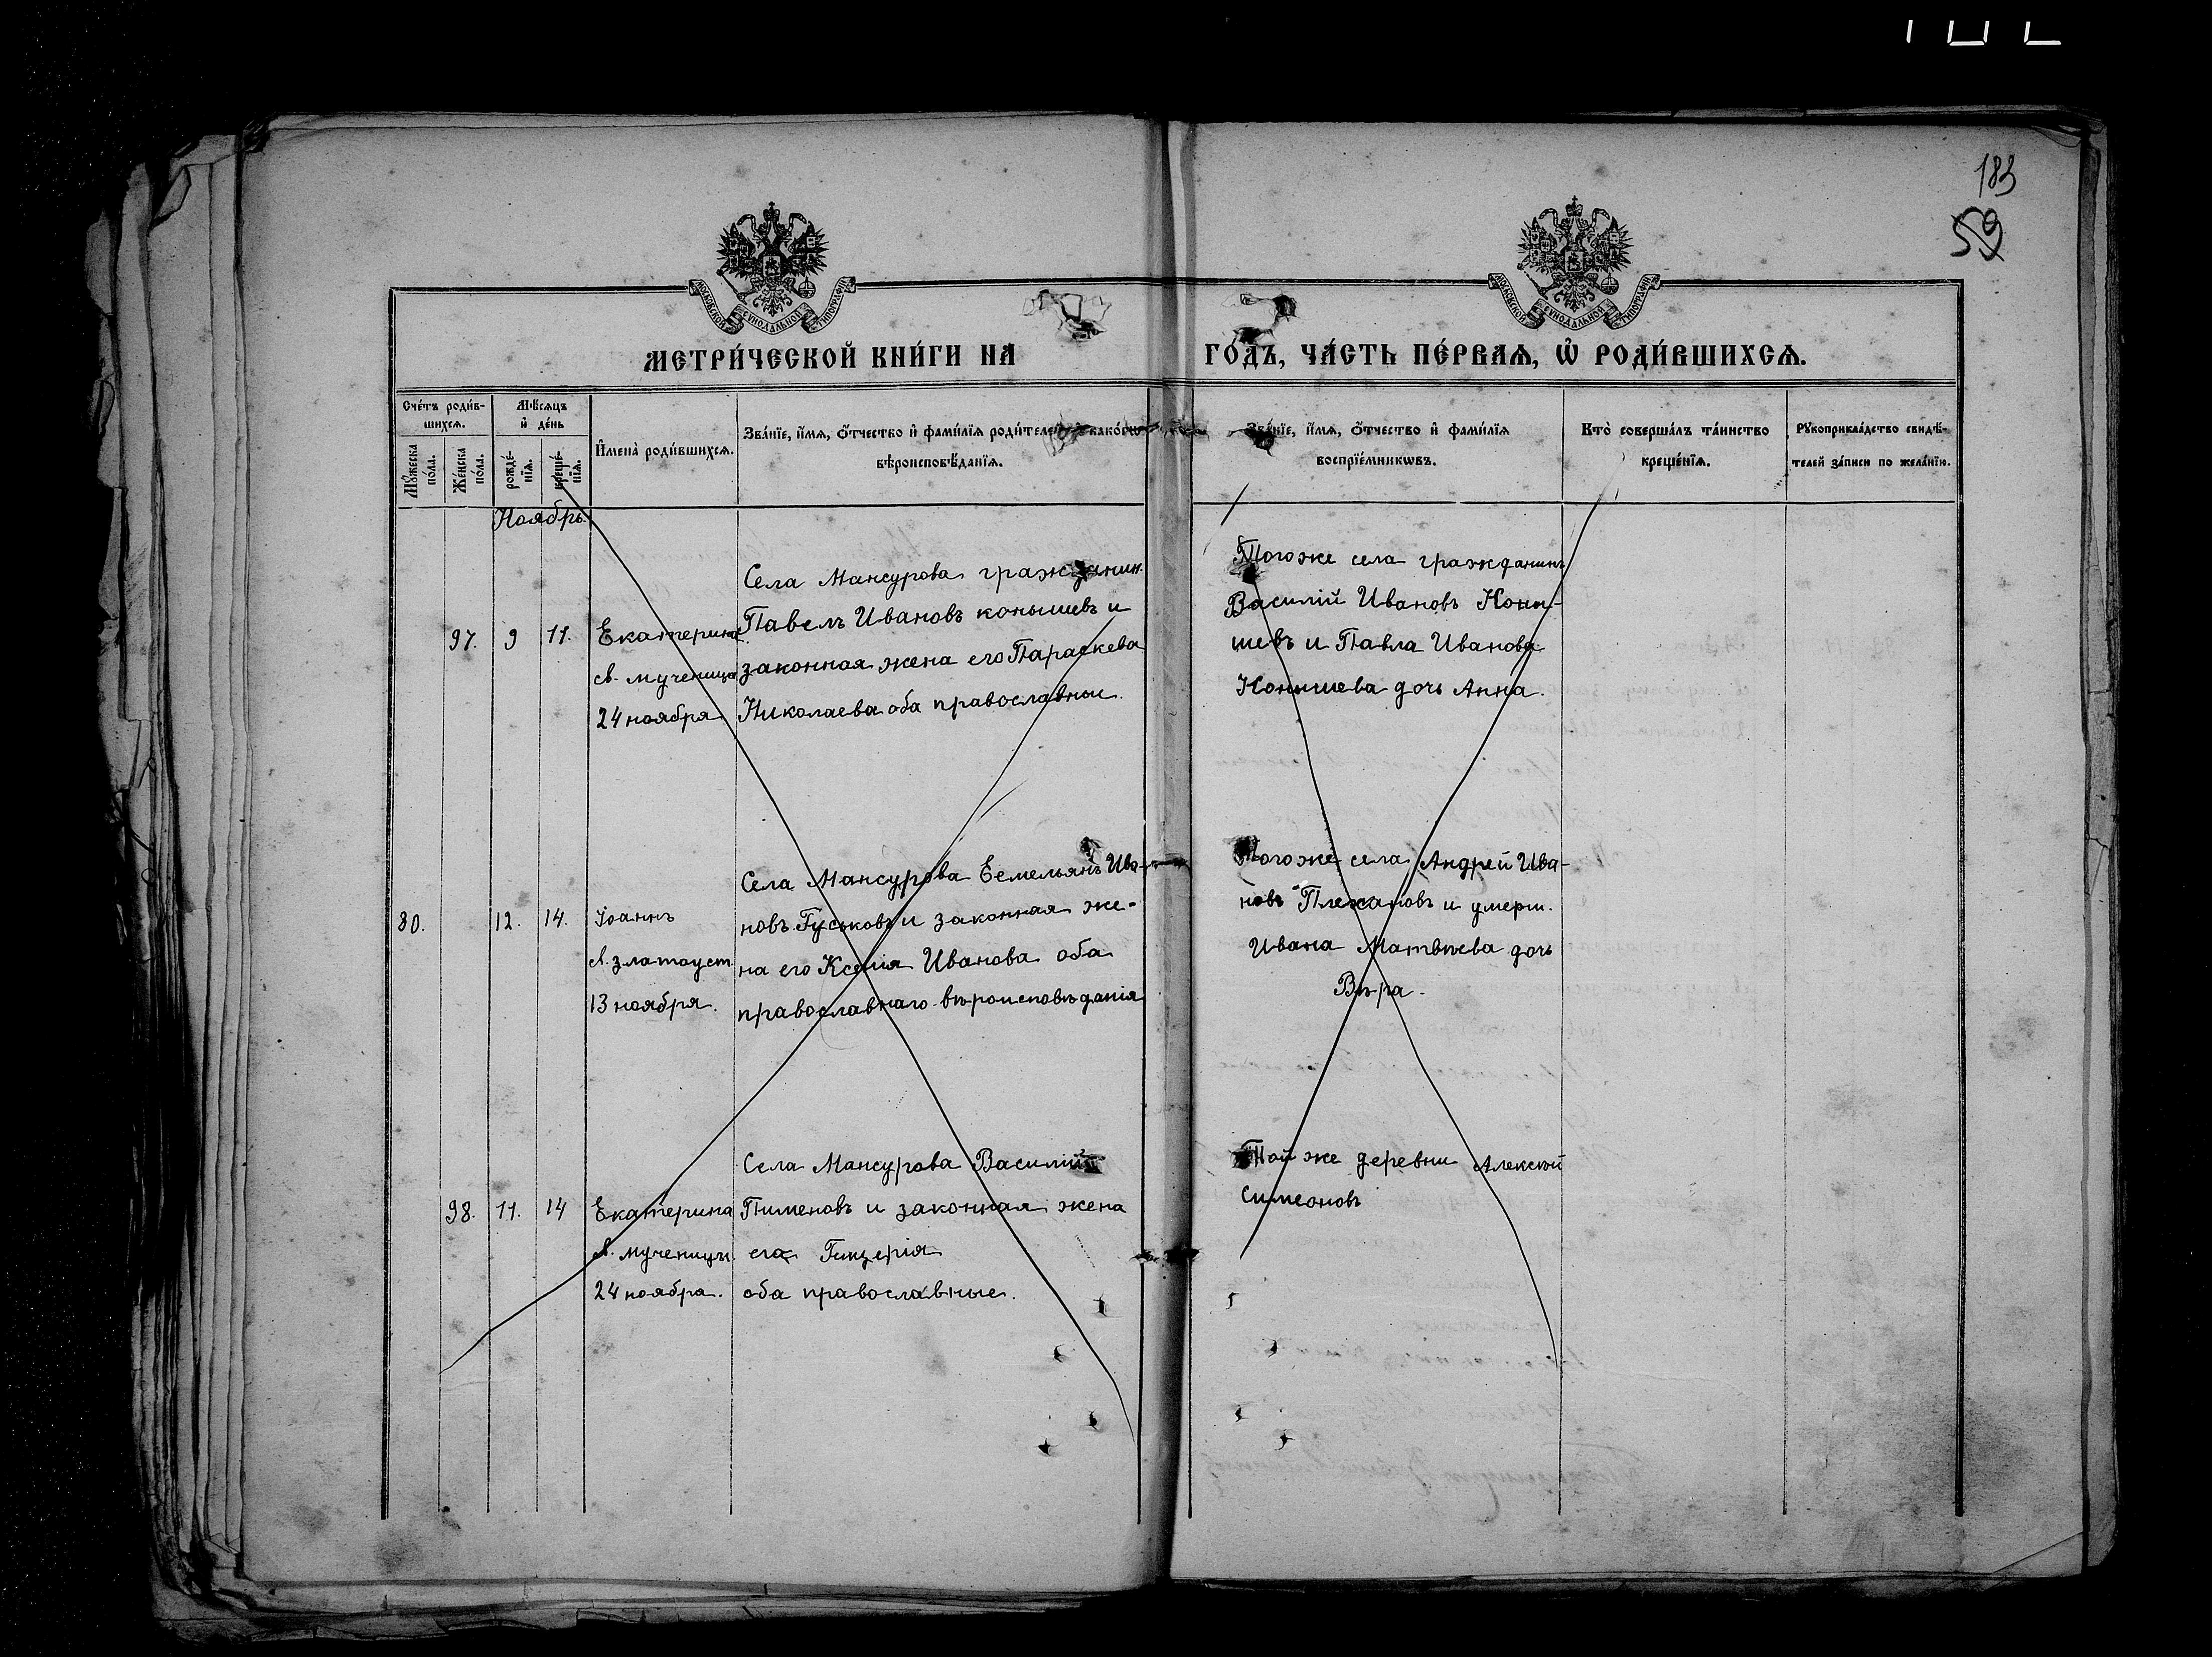 183
59
МОСКОВСКОЙ СѴНОДАЛЬНОЙ ТИПОГРАФІИ
МОСКОВСКОЙ СѴНОДАЛЬНОЙ ТИПОГРАФІИ
МЕТРИ́ЧЕСКОЙ КНИ́ГИ НА ГО́ДЪ, ЧА́СТЬ ПЕ́РВАѦ, Ѡ҆ РОДИ́ВШИХСѦ.
Сче́тъ роди́в-
шихсѧ.
Мꙋ́жеска по́ла.
Же́нска по́ла.
Мѣ́сѧцъ
и҆ де́нь
рожде́-нїѧ.
креще́-нїѧ.
И҆мена̀ роди́вшихсѧ.
Зва́нїе, и҆́мѧ, ѻ҆́тчество и҆ фами́лїѧ роди́телей како́гѡ
вѣроисповѣ́данїѧ.
Зва́нїе, и҆́мѧ, ѻ҆́тчество и҆ фами́лїѧ
воспрїе́мникѡвъ.
Кто̀ соверша́лъ та́инство
креще́нїѧ.
Рꙋкоприкла́дство свидѣ́-
телей за́писи по жела́нїю.
Ноябрь.
97. 9 11.
Екатерина
св. мученица
24 ноября
Села Мансурова гражданин.
Павелъ Ивановъ Конышевъ и
законная жена его Параскева
Николаева оба православные.
Того же села гражданинъ
Василій Ивановъ Коны-
шевъ и Павла Иванова
Конышева дочь Анна.
80. 12. 14.
Іоаннъ
св. златоуст.
13 ноября.
Села Мансурова Емельянъ Ива-
новъ Гуськовъ и законная же-
на его Ксенія Иванова оба
православнаго вѣроисповѣданія
Того же села Андрей Ива-
новъ Плехановъ и умерш.
Ивана Матвѣева дочь
Вѣра.
98. 11. 14
Екатерина
св. мученицы
24 ноября.
Села Мансурова Василій
Пименовъ и законная жена
его
оба православные.
Той же деревни Алексѣй
Симеоновъ